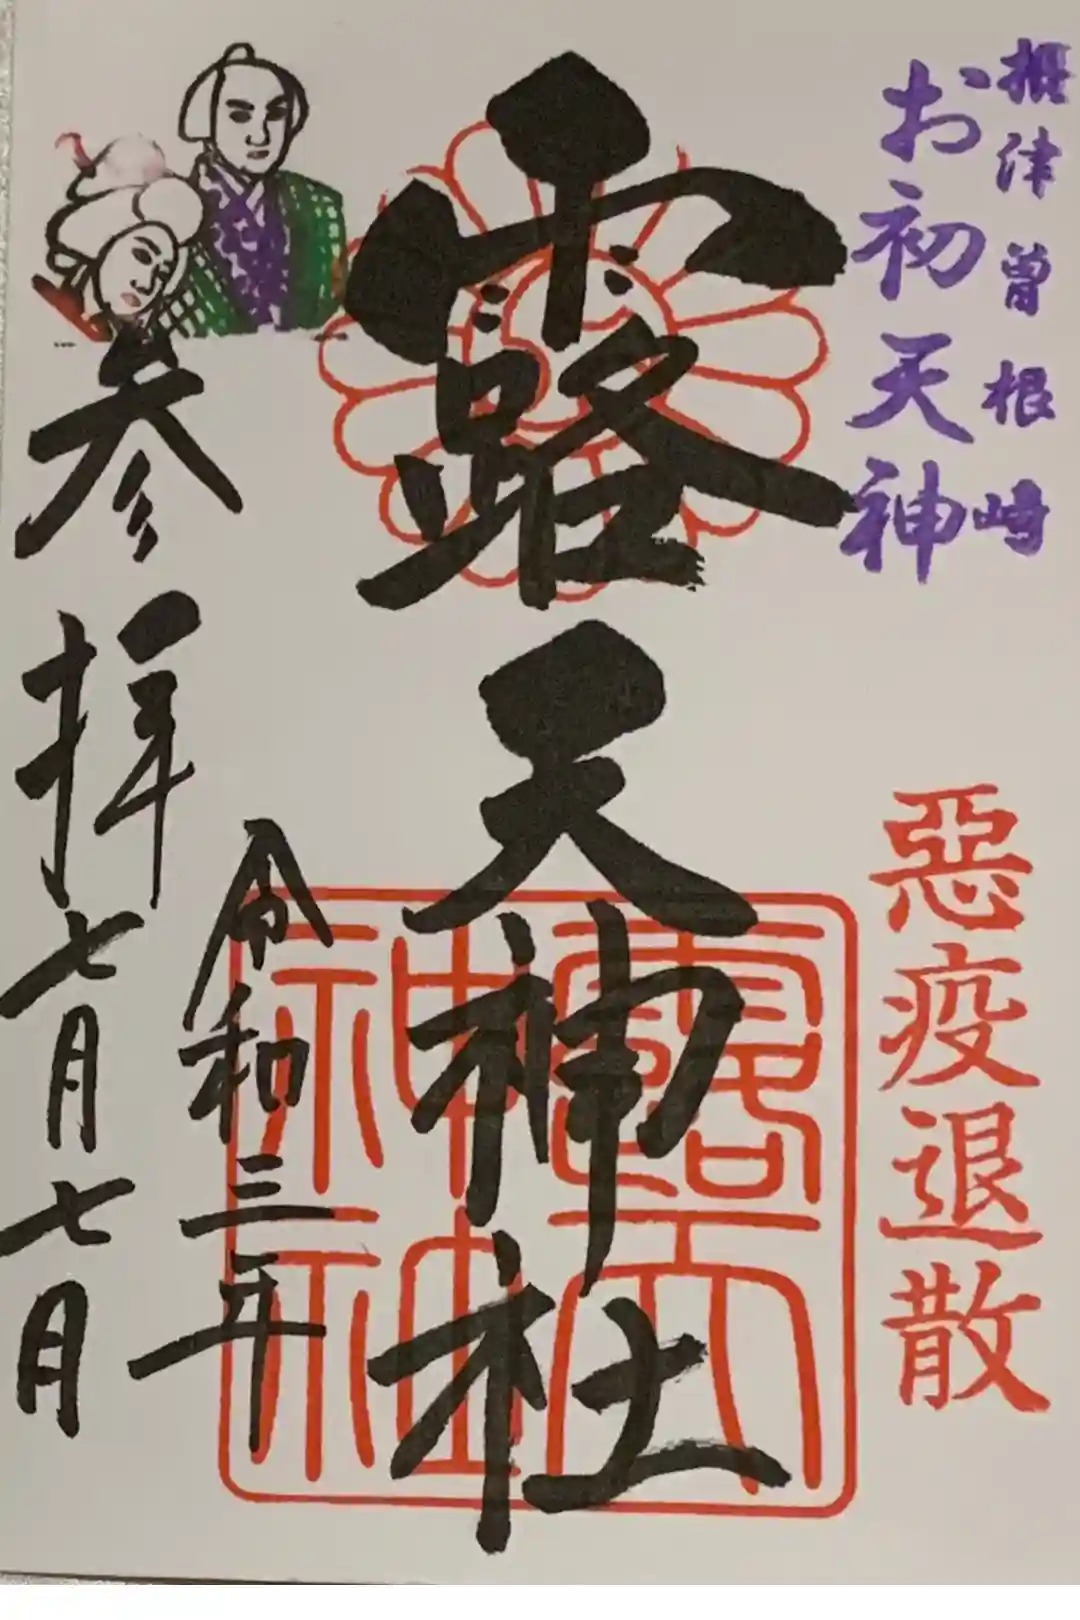 摂津曽根崎
お初天神
惡疫退散
露天神社
令和三年
参拝七月七日